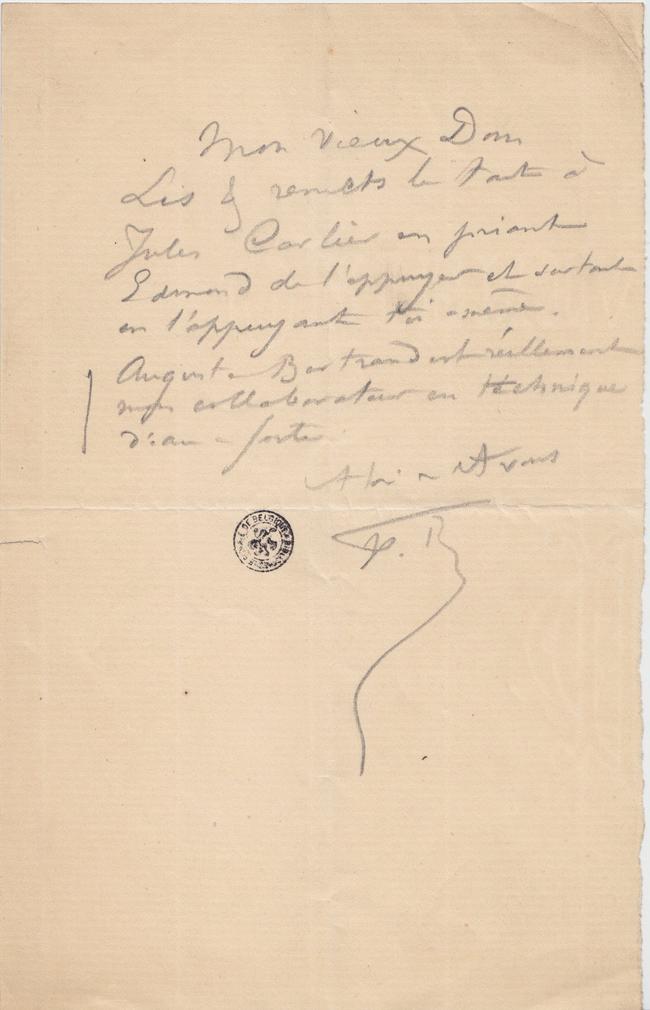 Mon vieux Dom
Lis & remets le tout à
Jules Carlier en priant
Edmond de l'appuyer et surtout
en l'appuyant toi même.
Auguste Bertrand est réellement
mon collaborateur en téchnique
d'eau-forte
A toi et A vous
F. R